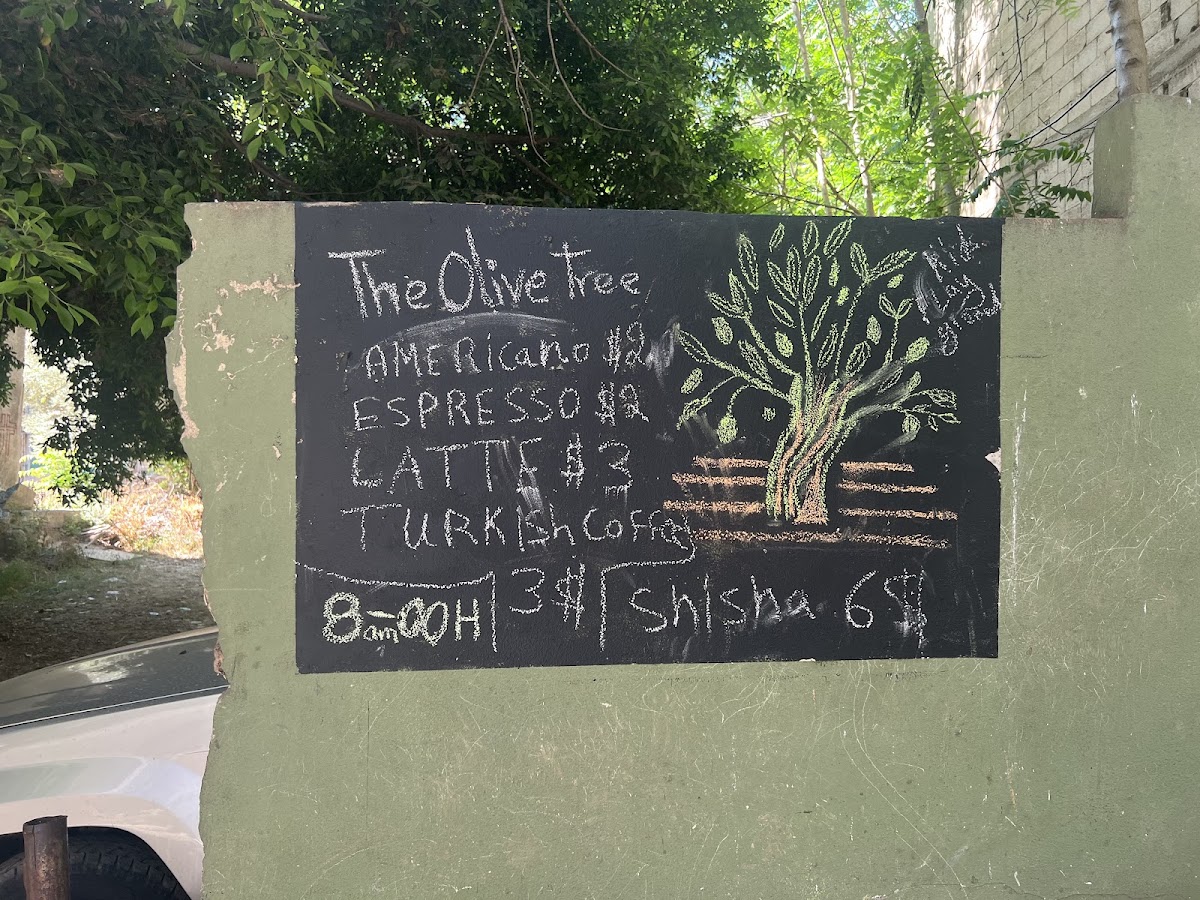 The Olive Tree
AMERicano $2
ESPRESSO $2
LATTE $3
TURKish Coffee
3$
8am-00H
Shisha 6$